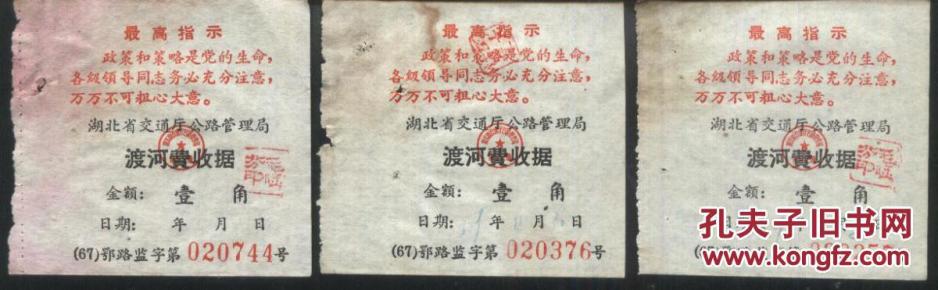 最高指示
政策和策略是党的生命，
各级领导同志务必充分注意，
万万不可粗心大意。
湖北省交通厅公路管理局
渡河費收据
金额：壹角
日期：年月日
(67)鄂路监字第020744号
最高指示
政策和策略是党的生命，
各级领导同志务必充分注意，
万万不可粗心大意。
湖北省交通厅公路管理局
渡河費收据
金额：壹角
日期：年月日
(67)鄂路监字第020376号
最高指示
政策和策略是党的生命，
各级领导同志务必充分注意，
万万不可粗心大意。
湖北省交通厅公路管理局
渡河費收据
金额：壹角
日期：
孔夫子旧书网
www.kongfz.com